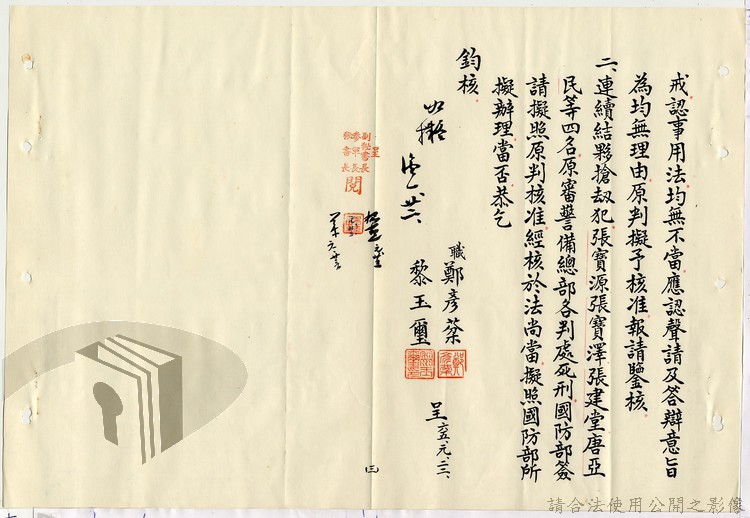 戒認事用法均無不當應認聲請及答辯意旨
為均無理由原判擬予核准報請鑒核
二、連續結夥搶刼犯張寶源張寶澤張建堂唐亞
民等四名原審警備總部各判處死刑國防部簽
請擬照原判核准經核於法尚當擬照國防部所
擬辦理當否恭乞
鈞核
職 鄭彥棻
黎玉璽
呈
副秘書長
參軍長
秘書長
閱
(三)
請合法使用公開之影像